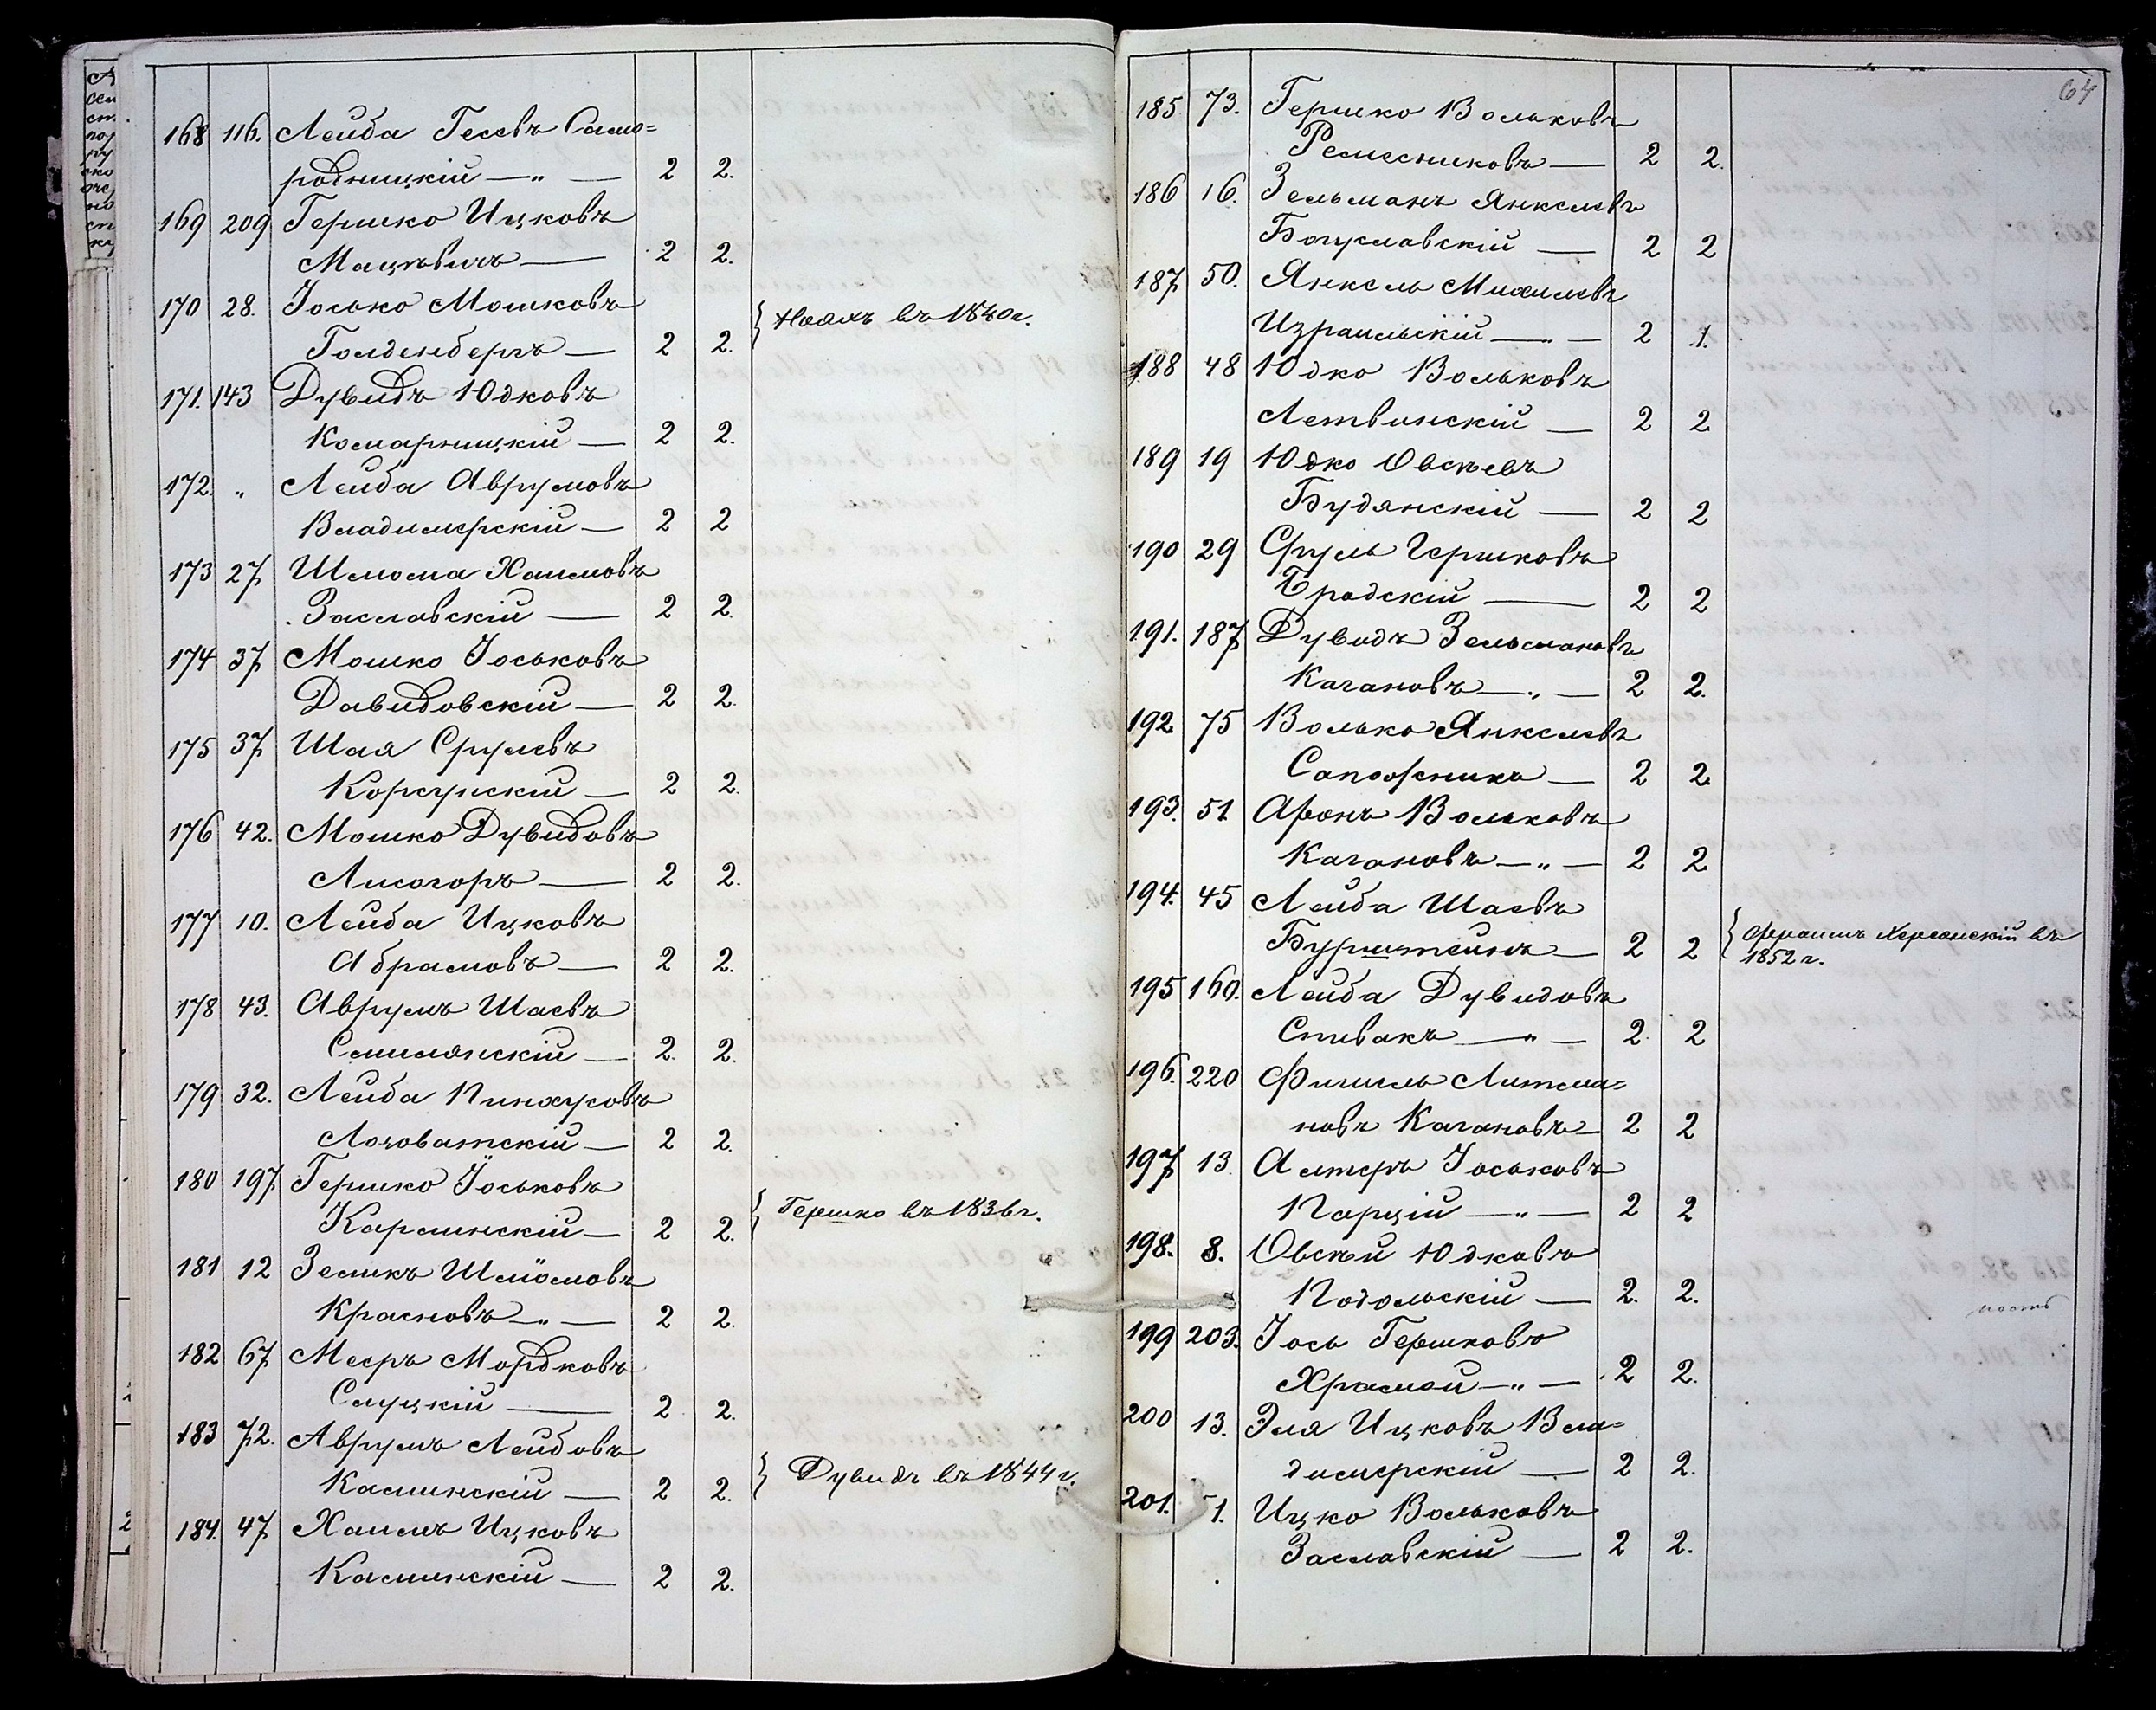 168 116. Лейба Гесевъ Само=
родницкій —„— 2 2.
169 209 Гершко Ицковъ
Мацѣвичъ — 2 2.
170 28. Іосько Мошковъ
Голденбергъ — 2 2. } Ноахъ въ 1840г.
171. 143 Дувидъ Юдковъ
Комарницкій — 2 2.
172. „ Лейба Аврумовъ
Владимерскій — 2 2
173 27 Шмома Хаимовъ
Заславскій — 2 2.
174 37 Мошко Іоськовъ
Давидовскій — 2 2.
175 37 Шая Срулевъ
Корсунскій — 2 2.
176 42. Мошко Дувидовъ
Лисогоръ — 2 2.
177 10. Лейба Ицковъ
Абрамовъ — 2 2.
178 43. Аврумъ Шаевъ
Смилянскій — 2. 2.
179 32. Лейба Пинхусовъ
Лозоватскій — 2 2.
180 197 Гершко Іоськовъ
Карлинскій — 2 2. } Гершко въ 1836г.
181 12 Зеликъ Шліомовъ
Красновъ „ — 2 2.
182 67 Мееръ Мордковъ
Слуцкій — 2 2.
183 72. Аврумъ Лейбовъ
Калинскій — 2 2. } Дувидъ въ 1844г.
184. 47 Хаимъ Ицковъ
Калинскій — 2 2.
64
185 73. Гершко Вольковъ
Ремесниковъ — 2 2.
186 16. Зельманъ Янкелевъ
Богуславскій — 2 2
187 50. Янкель Михилевъ
Израильскій —„— 2 1.
188 48 Юдко Вольковъ
Летвинскій — 2 2
189 19 Юдко Овсѣевъ
Будянскій — 2 2
190 29 Сруль Гершковъ
Бродскій — 2 2
191. 187 Дувидъ Зельмановъ
Кагановъ —„— 2 2.
192 75 Волько Янкелевъ
Сапожникъ — 2 2
193. 51 Аронъ Вольковъ
Кагановъ —„— 2 2
194. 45 Лейба Шаевъ
Бурштейнъ — 2 2 { Фраимъ Херсонскій въ
1852г.
195 160. Лейба Дувидовъ
Спивакъ —„— 2 2
196. 220 Фишель Литма=
новъ Кагановъ — 2 2
197 13 Алтеръ Іоськовъ
Парцій —„— 2 2
198. 8. Овсѣй Юдковъ
Подольскій — 2. 2.
199 203. Іось Гершковъ
Храмой —„— 2 2.
200 13. Эля Ицковъ Вла=
димерскій — 2 2.
201. 1. Ицко Вольковъ
Заславскій — 2 2.